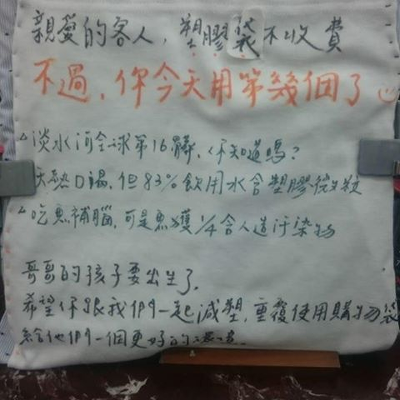 親愛的客人，塑膠袋不收費
不過，你今天用第幾個了
淡水河全球第16髒，你知道嗎？
天熱口渴，但83%飲用水含塑膠微粒
吃魚補腦，可是魚獲1/4含人造汙染物
哥哥的孩子要出生了，
希望你跟我們一起減塑，重覆使用購物袋
給他們一個更好的環境。